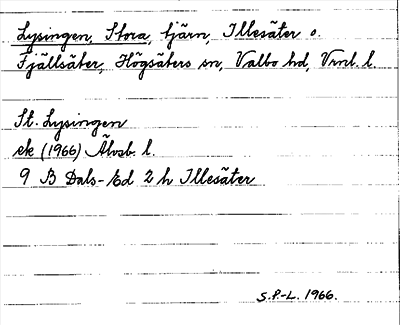 Lysingen, Stora, tjärn, Illesäter o.
Fjällsäter, Högsäters sn, Valbo hd, Vrml. l.
St. Lysingen
ek (1966) Älvsb. l.
9 B Dals-Ed 2 h Illesäter
S.P.-L. 1966.